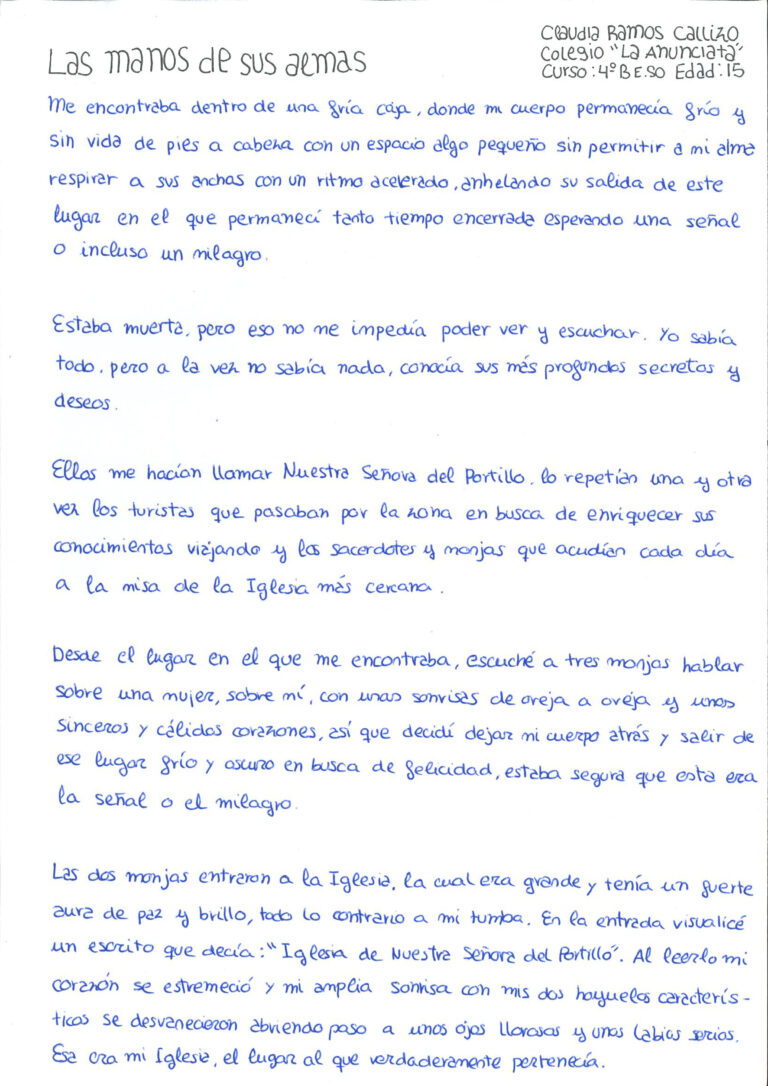 Claudia Ramos Callizo
Colegio "La Anunciata"
Curso: 4º B ESO Edad: 15
Las manos de sus almas
Me encontraba dentro de una fría caja, donde mi cuerpo permanecía frío y
sin vida de pies a cabeza con un espacio algo pequeño sin permitir a mi alma
respirar a sus anchas con un ritmo acelerado, anhelando su salida de este
lugar en el que permanecí tanto tiempo encerrada esperando una señal
o incluso un milagro.
Estaba muerta, pero eso no me impedía poder ver y escuchar. Yo sabía
todo, pero a la vez no sabía nada, conocía sus más profundos secretos y
deseos.
Ellos me hacían llamar Nuestra Señora del Portillo, lo repetían una y otra
vez los turistas que pasaban por la zona en busca de enriquecer sus
conocimientos viajando y los sacerdotes y monjas que acudían cada día
a la misa de la Iglesia más cercana.
Desde el lugar en el que me encontraba, escuché a tres monjas hablar
sobre una mujer, sobre mí, con unas sonrisas de oreja a oreja y unos
sinceros y cálidos corazones, así que decidí dejar mi cuerpo atrás y salir de
ese lugar frío y oscuro en busca de felicidad, estaba segura que esta era
la señal o el milagro.
Las dos monjas entraron a la Iglesia, la cual era grande y tenía un fuerte
aura de paz y brillo, todo lo contrario a mi tumba. En la entrada visualicé
un escrito que decía: "Iglesia de Nuestra Señora del Portillo". Al leerlo mi
corazón se estremeció y mi amplia sonrisa con mis dos hoyuelos caracterís-
ticos se desvanecieron abriendo paso a unos ojos llorosos y unos labios serios.
Esa era mi Iglesia, el lugar al que verdaderamente pertenecía.